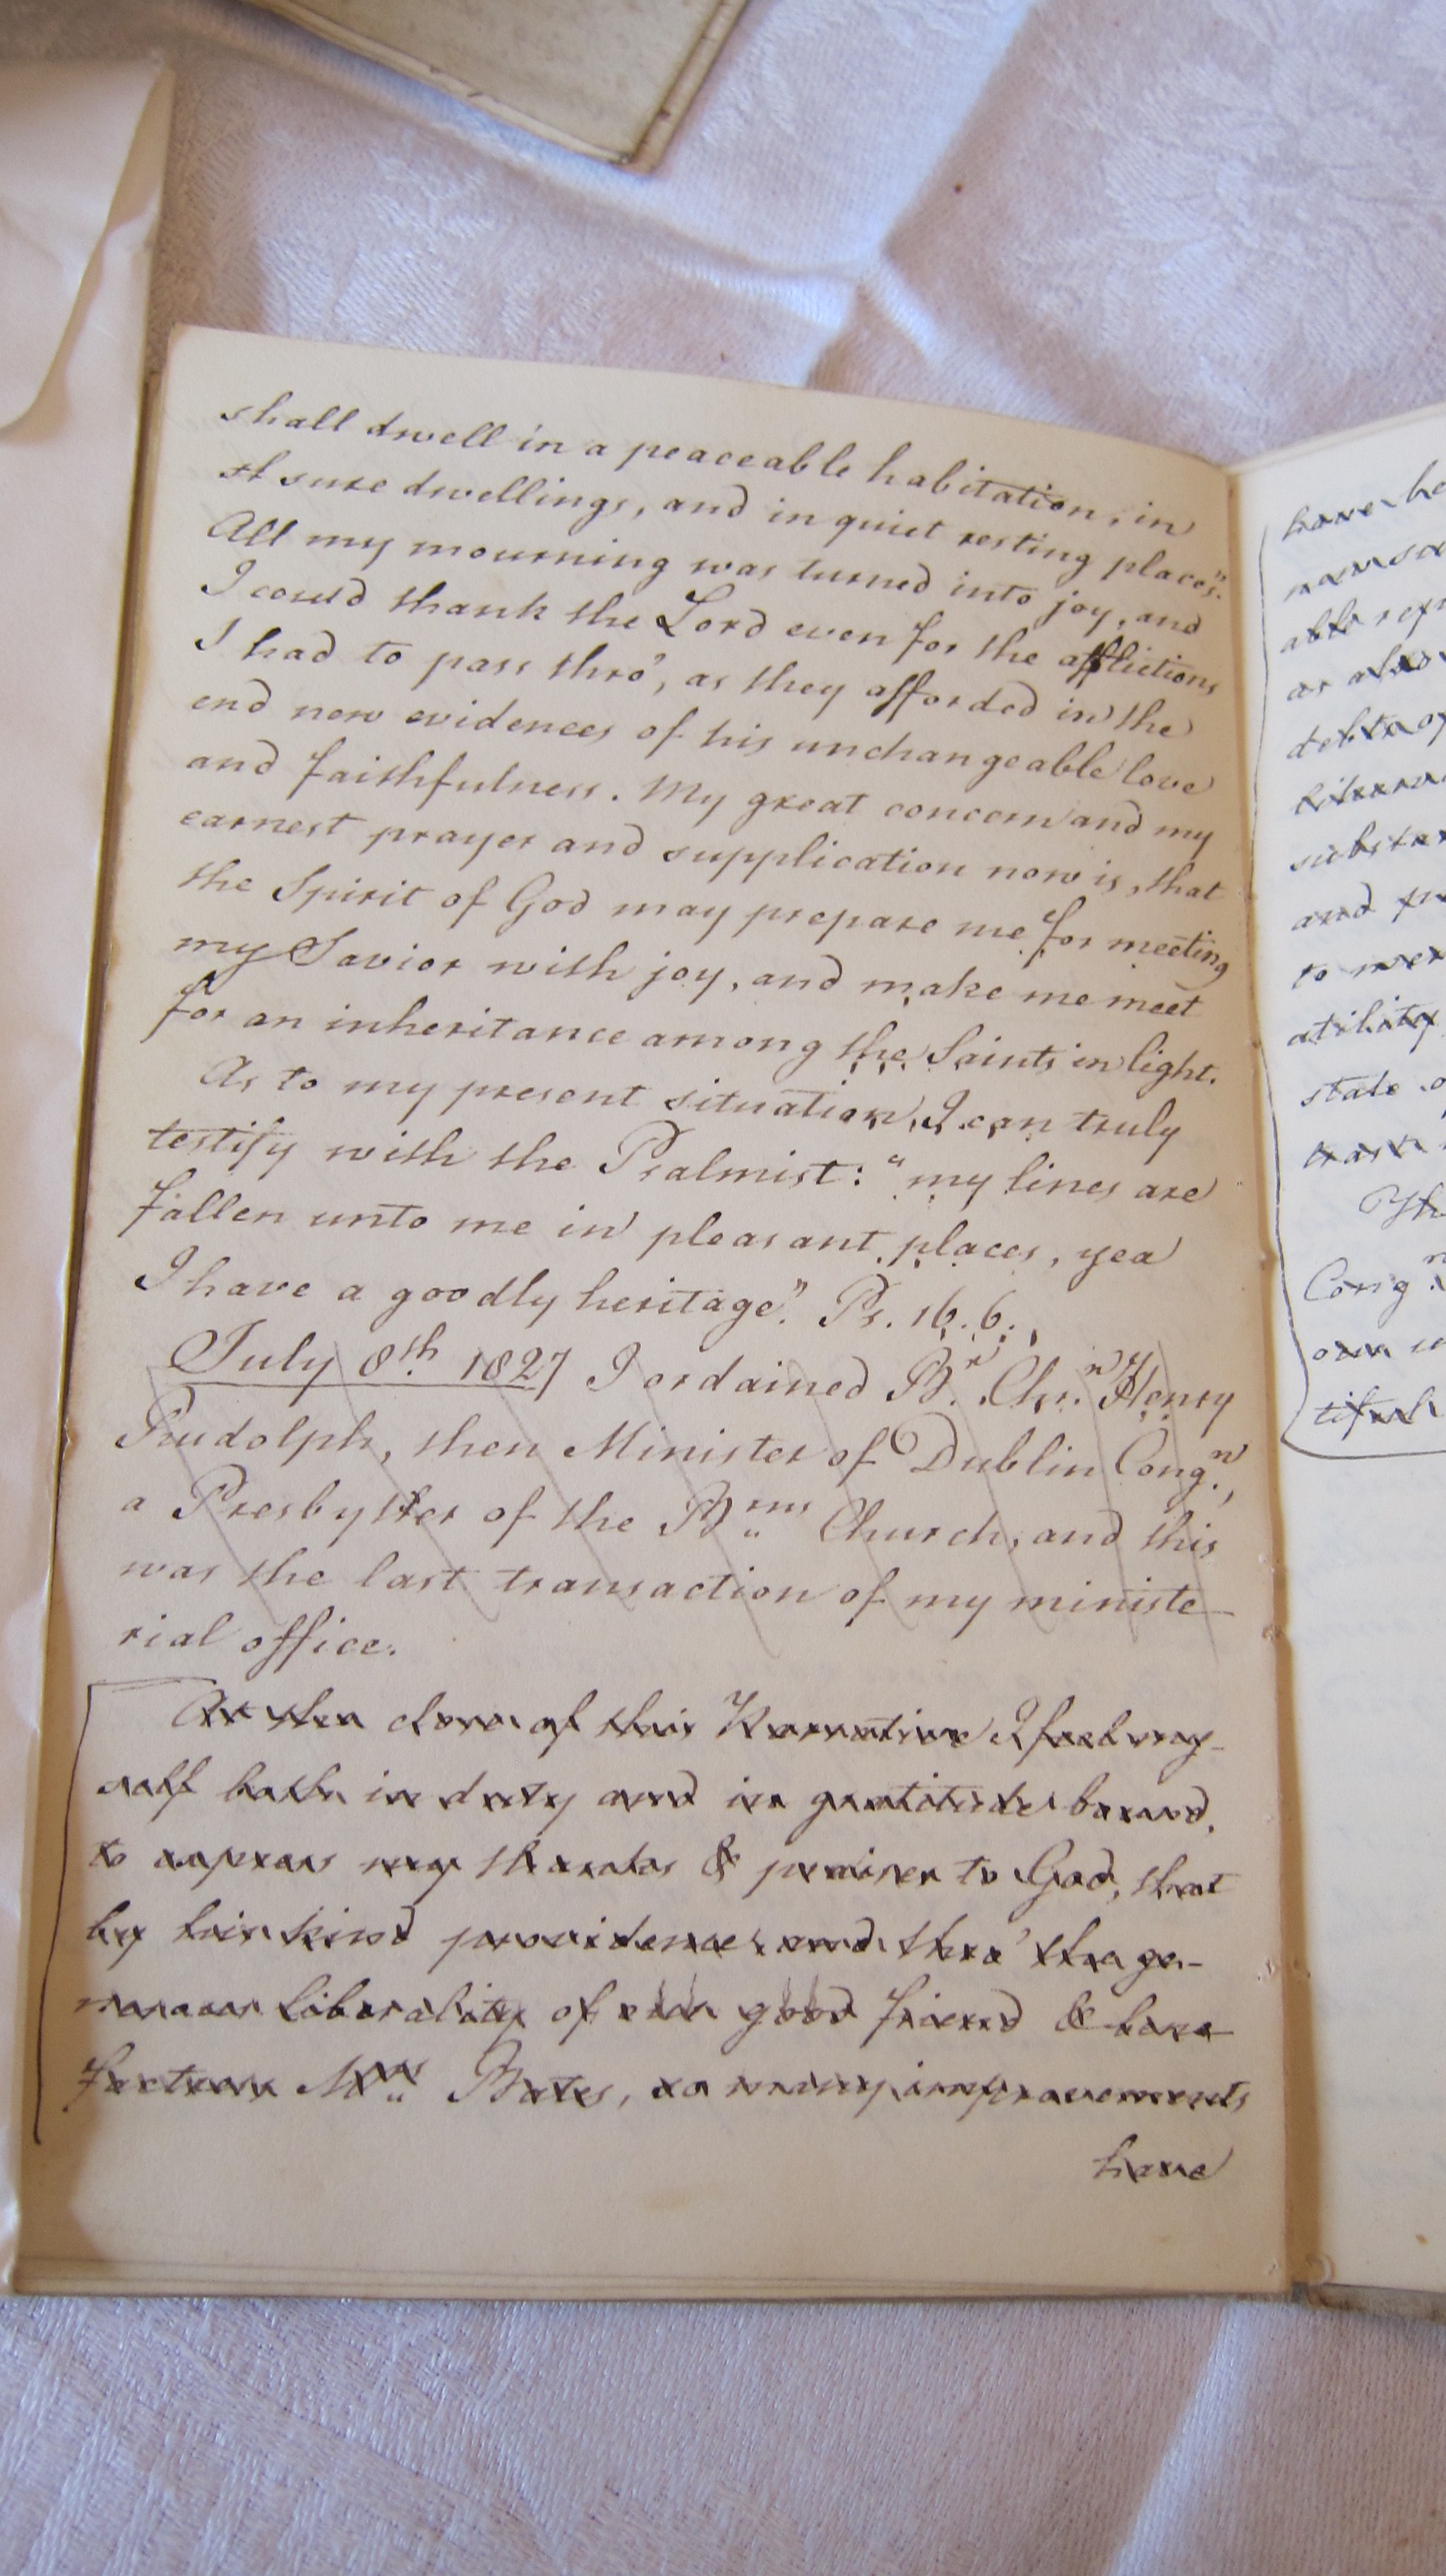 shall dwell in a peaceable habitation, in
sure dwellings, and in quiet resting places".
All my mourning was turned into joy, and
I could thank the Lord even for the afflictions
I had to pass thro', as they afforded in the
end new evidences of his unchangeable love
and faithfulness. My great concern and my
earnest prayer and supplication now is, that
the Spirit of God may prepare me for meeting
my Savior with joy, and make me meet
for an inheritance among the Saints in light.
As to my present situation, I can truly
testify with the Psalmist: "my lines are
fallen unto me in pleasant places, yea
I have a goodly heritage". Ps. 16. 6.
July 8th. 1827 I ordained Br. Chrn. Henry
Rudolph, then Minister of Dublin Congn.,
a Presbyter of the Brns Church, and this
was the last transaction of my ministe-
rial office.
At the close of this Narrative I feel my-
self both in duty and in gratitude bound,
to express my thanks & praises to God, that
by his kind providence and thro' the ge-
nerous liberality of our good friend & bene
factress Mrs Bates, so many improvements
have
have be
able
as also
debt of
literar
and
to
ability
state o
Th
Congn.
own